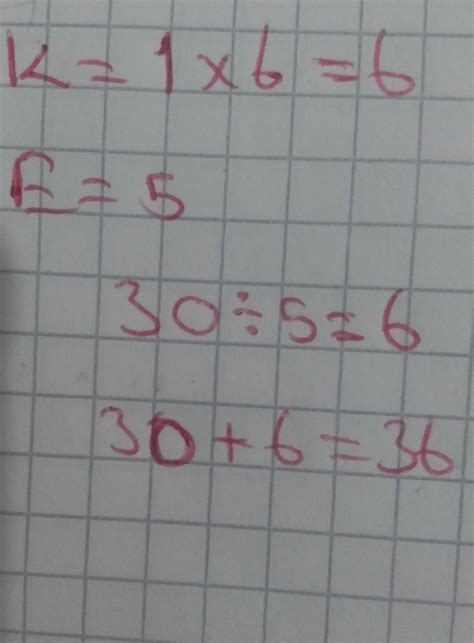 K = 1 x 6 = 6
E = 5
30 ÷ 5 = 6
30 + 6 = 36